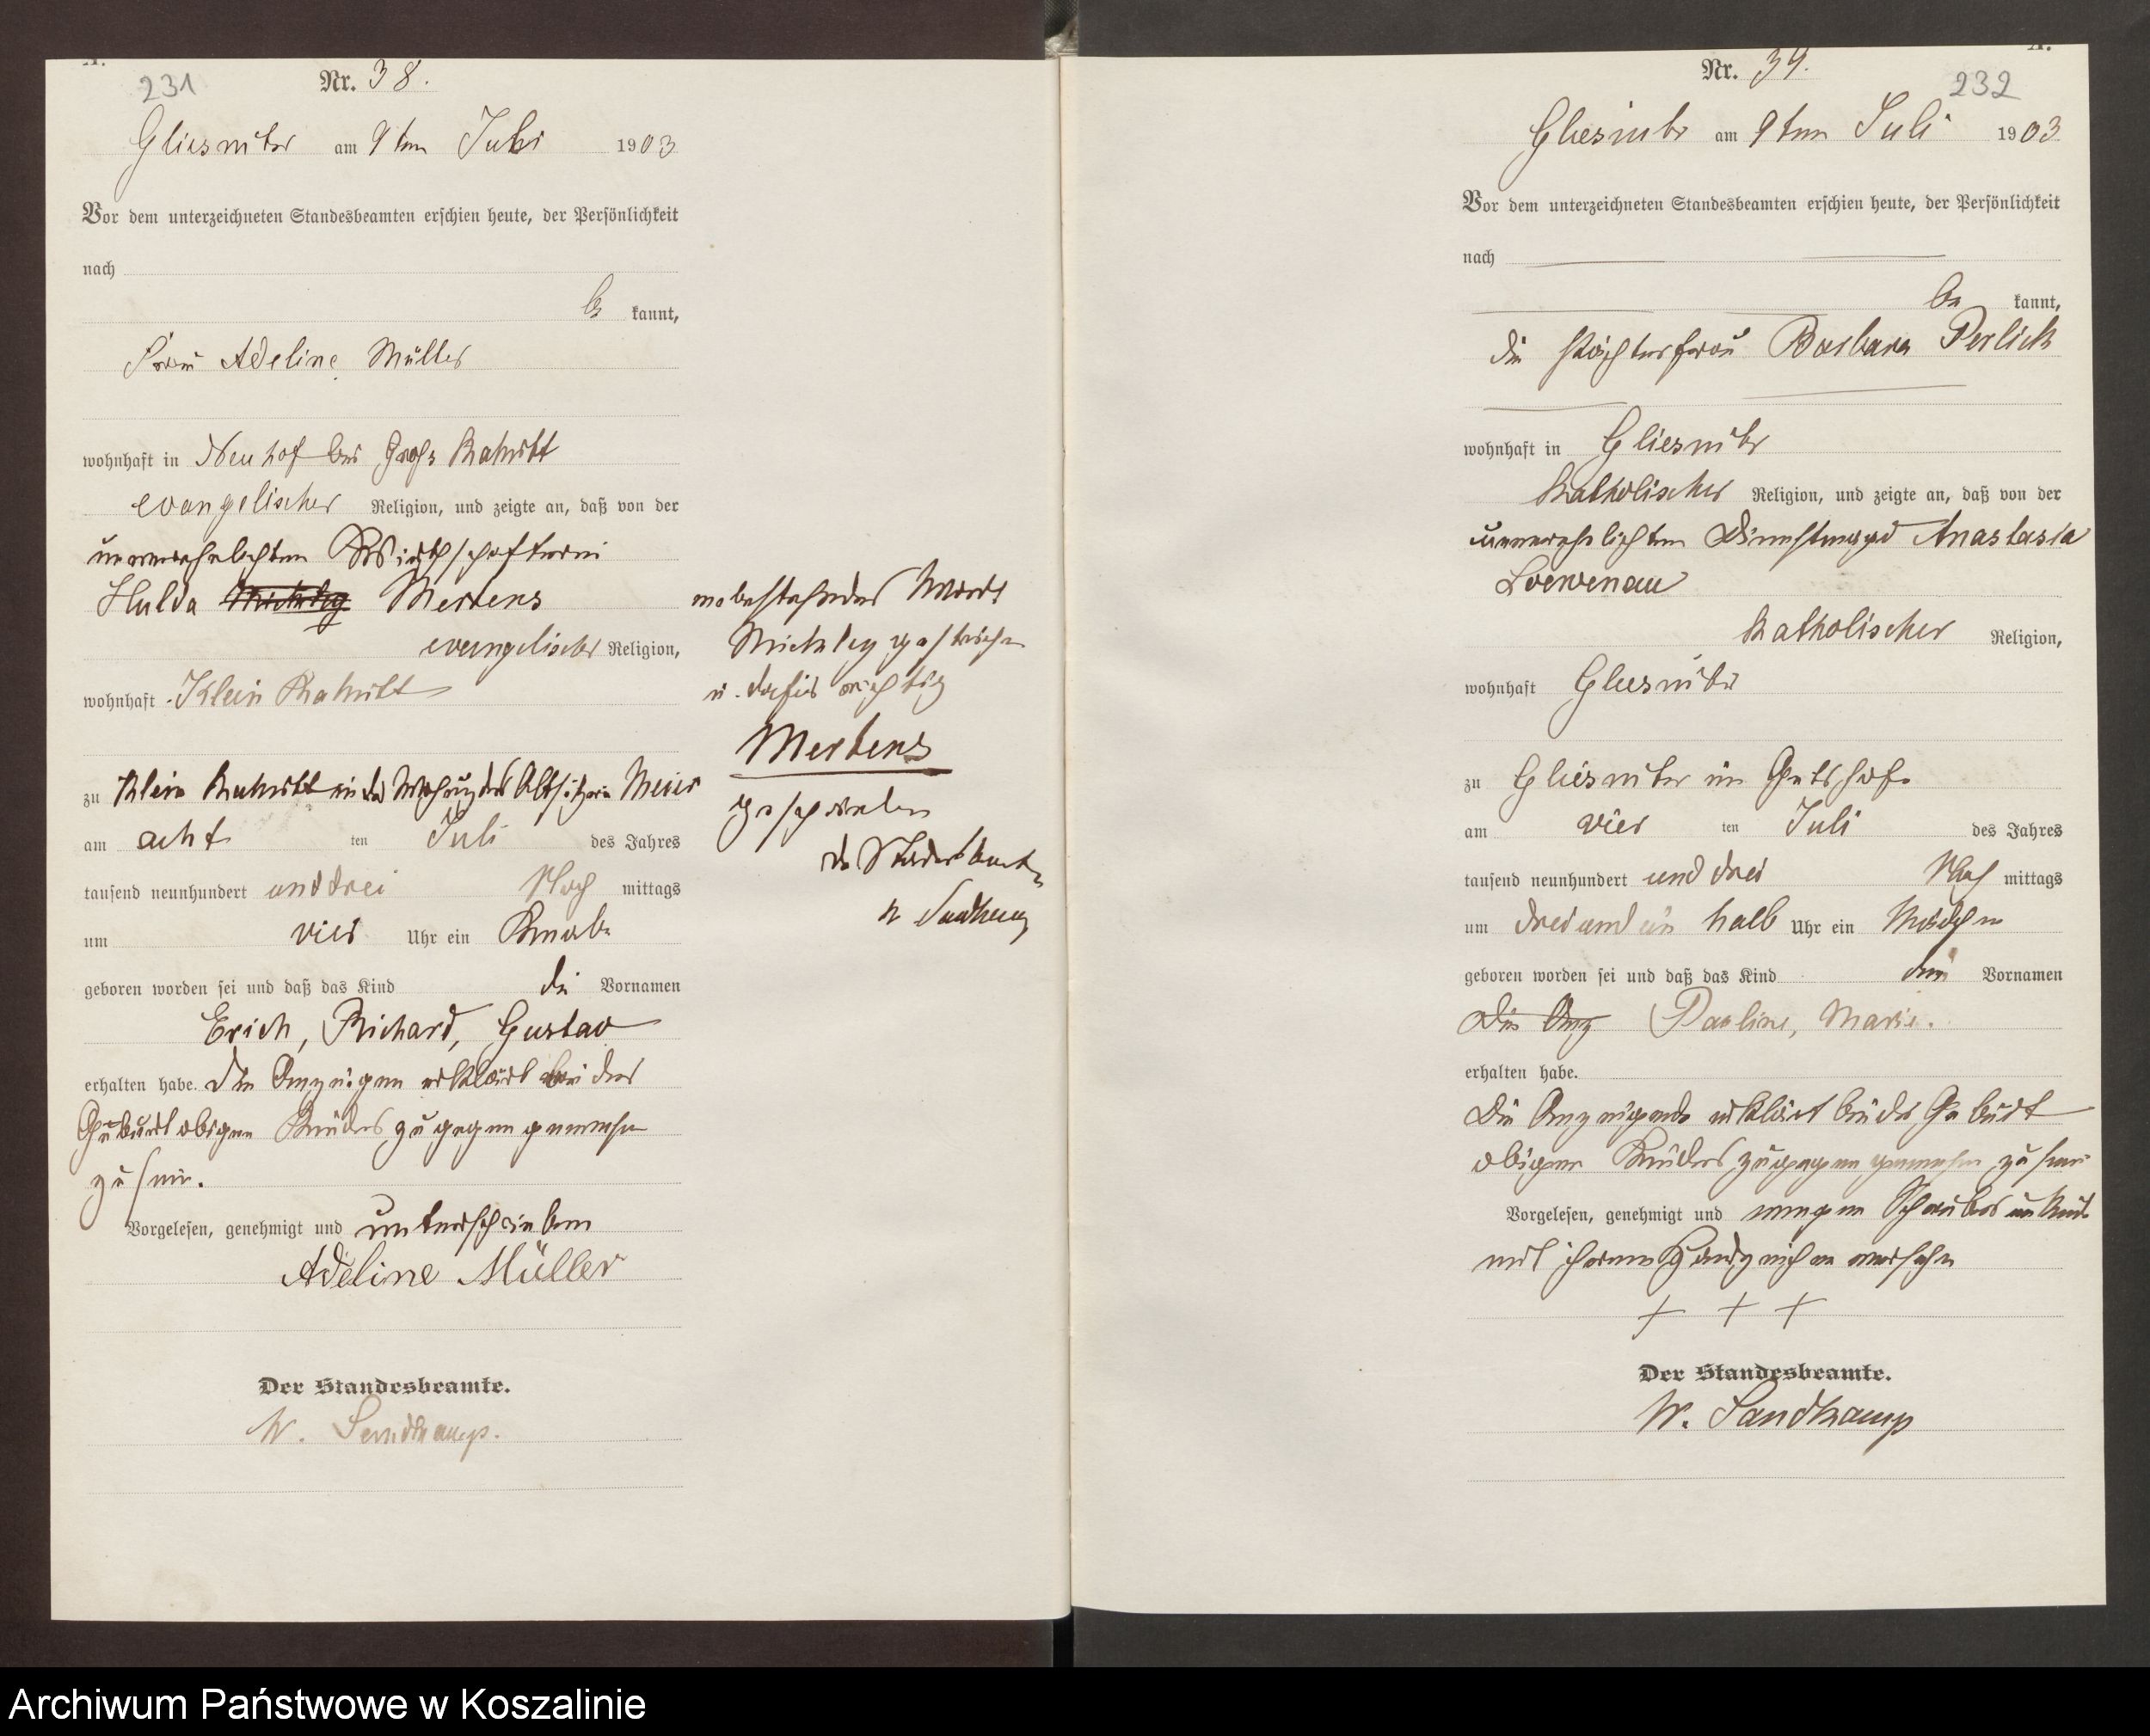 231
Nr. 38.
Gliesnitz am 9ten Juli 1903
Vor dem unterzeichneten Standesbeamten erschien heute, der Persönlichkeit
nach
be kannt,
Frau Adeline Müller
wohnhaft in Neuhof bei Groß
evangelischer Religion, und zeigte an, daß von der
unverehelichten Wirthschafterin
Hulda Mertens
evangelischer Religion,
wohnhaft Klein
zu Klein in der Wohnung des Altsitzers Meier
am acht ten Juli des Jahres
tausend neunhundert und drei Nach mittags
um vier Uhr ein Knabe
geboren worden sei und daß das Kind die Vornamen
Erich, Richard, Gustav
erhalten habe. Die Anzeigende erklärt bei der
Geburt obigen Kindes zugegen gewesen
zu sein.
Vorgelesen, genehmigt und unterschrieben
Adeline Müller
Der Standesbeamte.
W. Sandkamp.
nebenstehendes Wort
gestrichen
u. dafür richtig
Mertens
geschrieben
der Standesbeamte
W Sandkamp
232
Nr. 39.
Gliesnitz am 9ten Juli 1903
Vor dem unterzeichneten Standesbeamten erschien heute, der Persönlichkeit
nach
be kannt,
die Barbara Perlick
wohnhaft in Gliesnitz
katholischer Religion, und zeigte an, daß von der
unverehelichten Dienstmagd Anastasia
Loewenau
katholischer Religion,
wohnhaft Gliesnitz
zu Gliesnitz im Gutshofe
am vier ten Juli des Jahres
tausend neunhundert und drei Nach mittags
um drei und ein halb Uhr ein Mädchen
geboren worden sei und daß das Kind die Vornamen
Die Anz Pauline, Marie.
erhalten habe.
Die Anzeigende erklärt bei der Geburt
obigen Kindes zugegen gewesen zu sein
Vorgelesen, genehmigt und wegen Schreibens unkund
mit ihrem Handzeichen versehen
+ + +
Der Standesbeamte.
W. Sandkamp
Archiwum Państwowe w Koszalinie